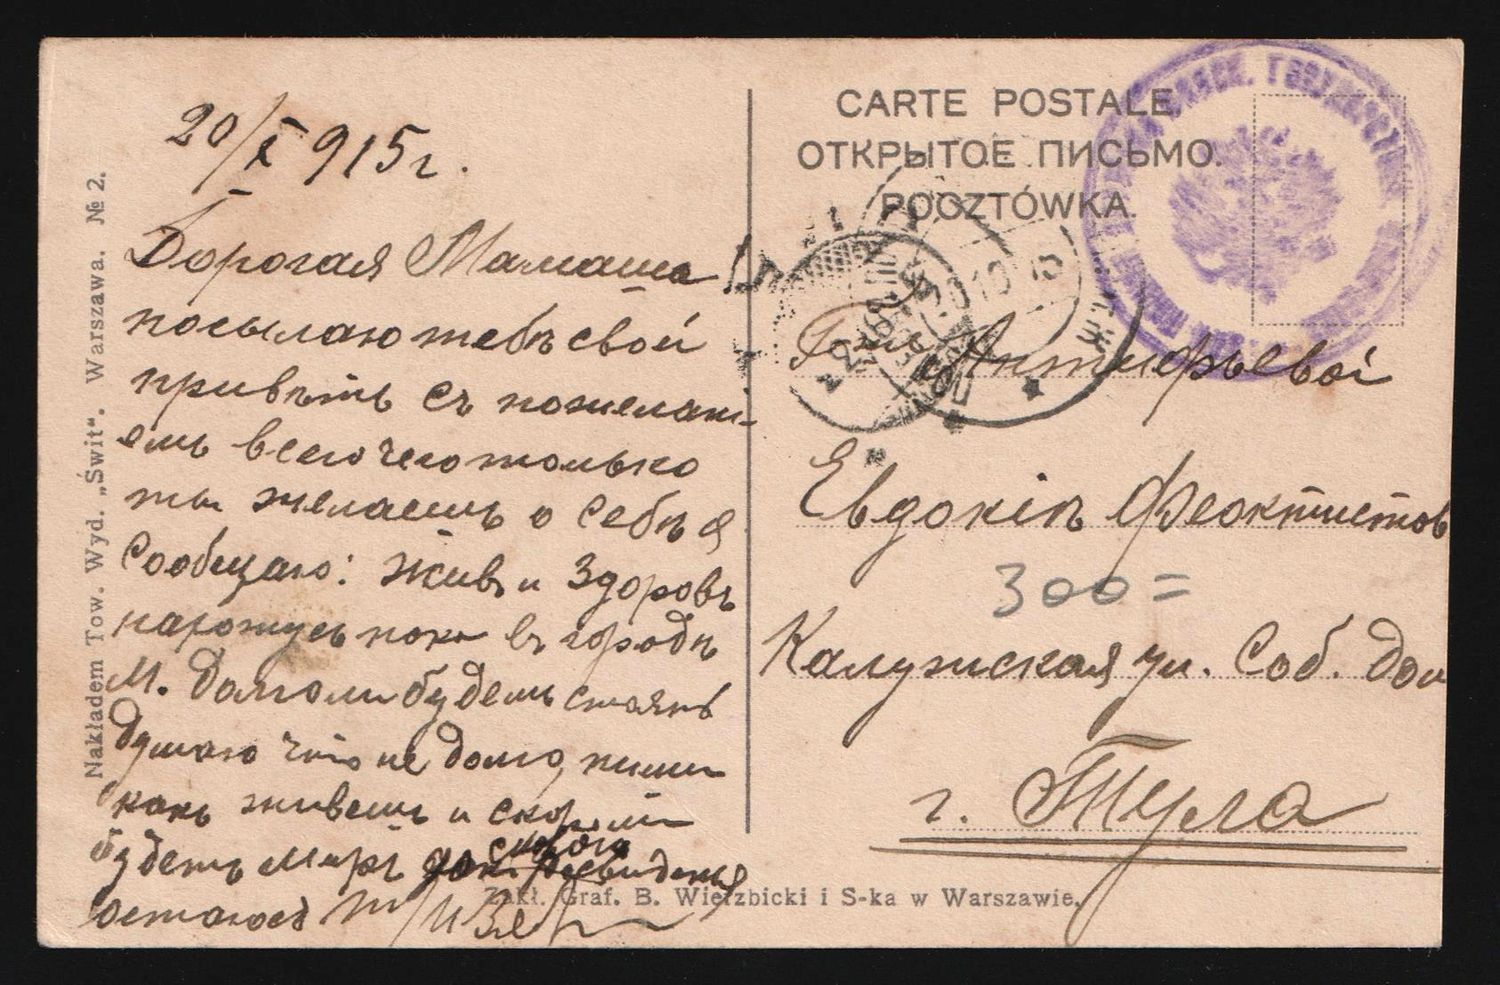 20/X 915 г.
Дорогая Мамаша
посылаю тебѣ свой
привѣтъ съ пожелані-
емъ всего чего только
ты желаешь о себѣ я
сообщаю: живъ и здоровъ
нахожусь пока въ городѣ
М. долголи будемъ стоять
думаю что не долго, пиши
какъ живешь и скоро ли
будетъ миръ до скораго свиденья
остаюсь
Nakładem Tow. Wyd. „Świt". Warszawa. № 2.
CARTE POSTALE.
ОТКРЫТОЕ ПИСЬМО.
POCZTÓWKA.
Г-жѣ Антифьевой
Евдокіи Феоктистов
300=
Калужская ул. Соб. дом
г. Тула
Zakł. Graf. B. Wierzbicki i S-ka w Warszawie.